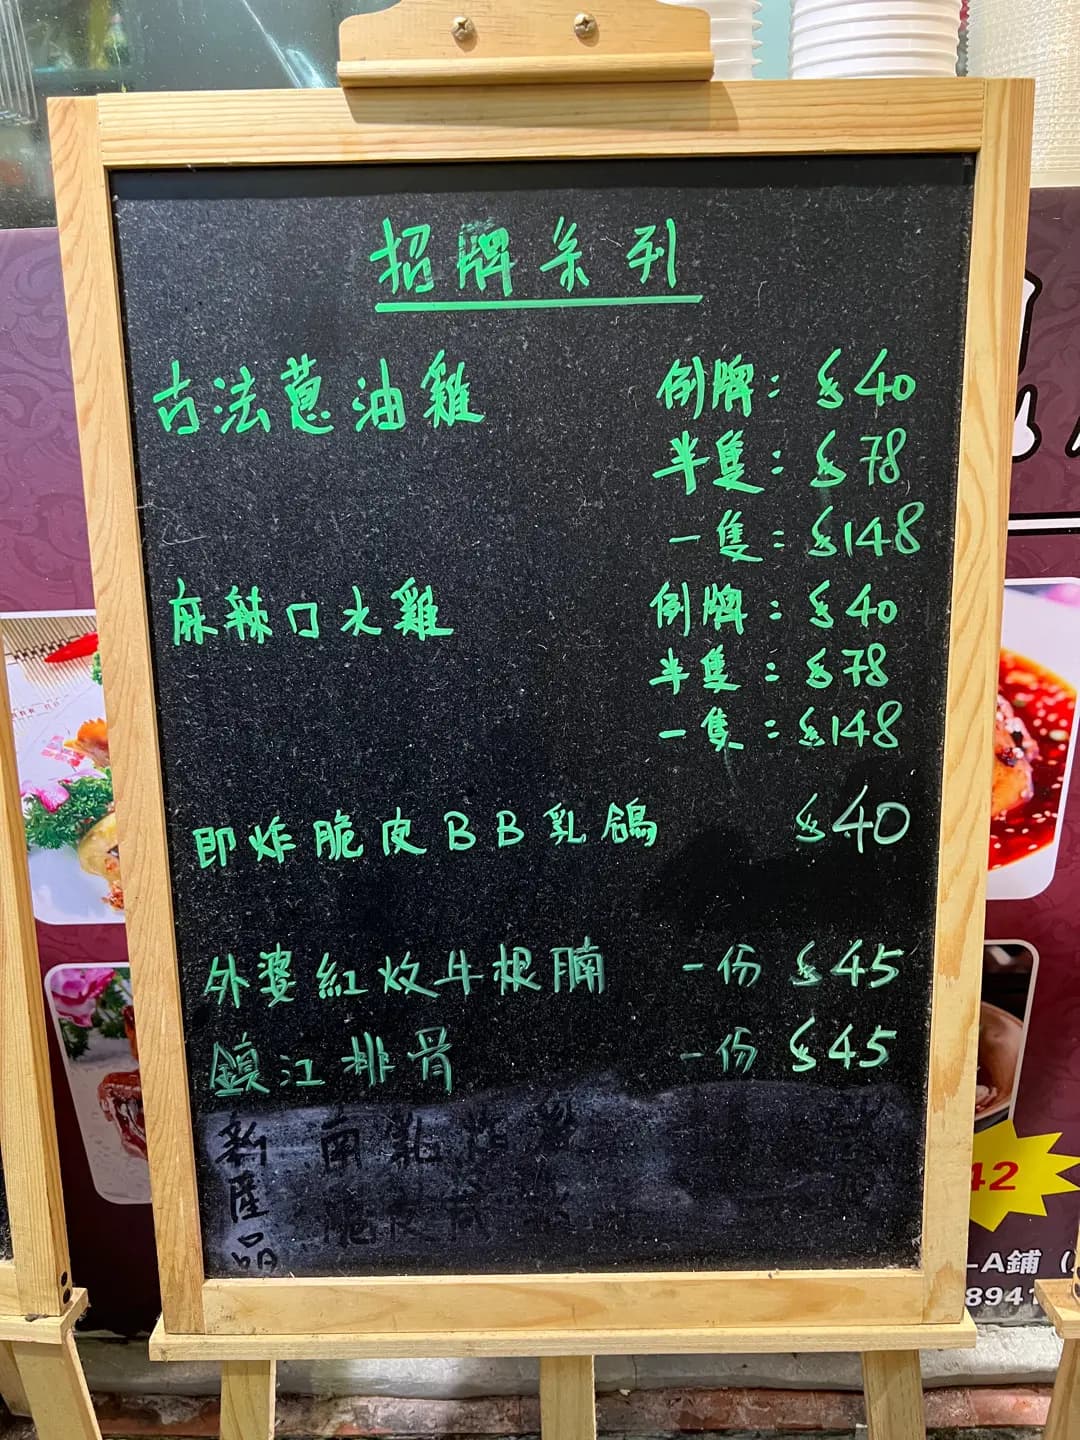 招牌系列
古法蔥油雞 例牌：$40
半隻：$78
一隻：$148
麻辣口水雞 例牌：$40
半隻：$78
一隻：$148
即炸脆皮BB乳鴿 $40
外婆紅炆牛根腩 一份 $45
鎮江排骨 一份 $45
新產品
南乳
脆皮
42
-A鋪（
8941